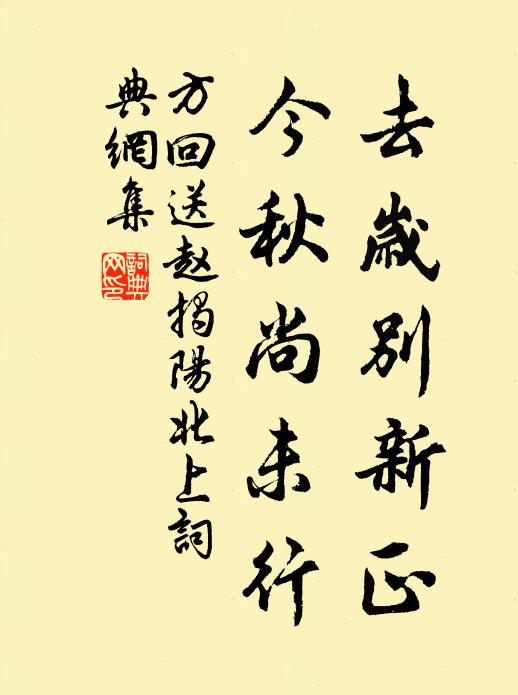 去歲別新正
今秋尚未行
方回送赵揭陽北上詞
典網集
詞典
网印